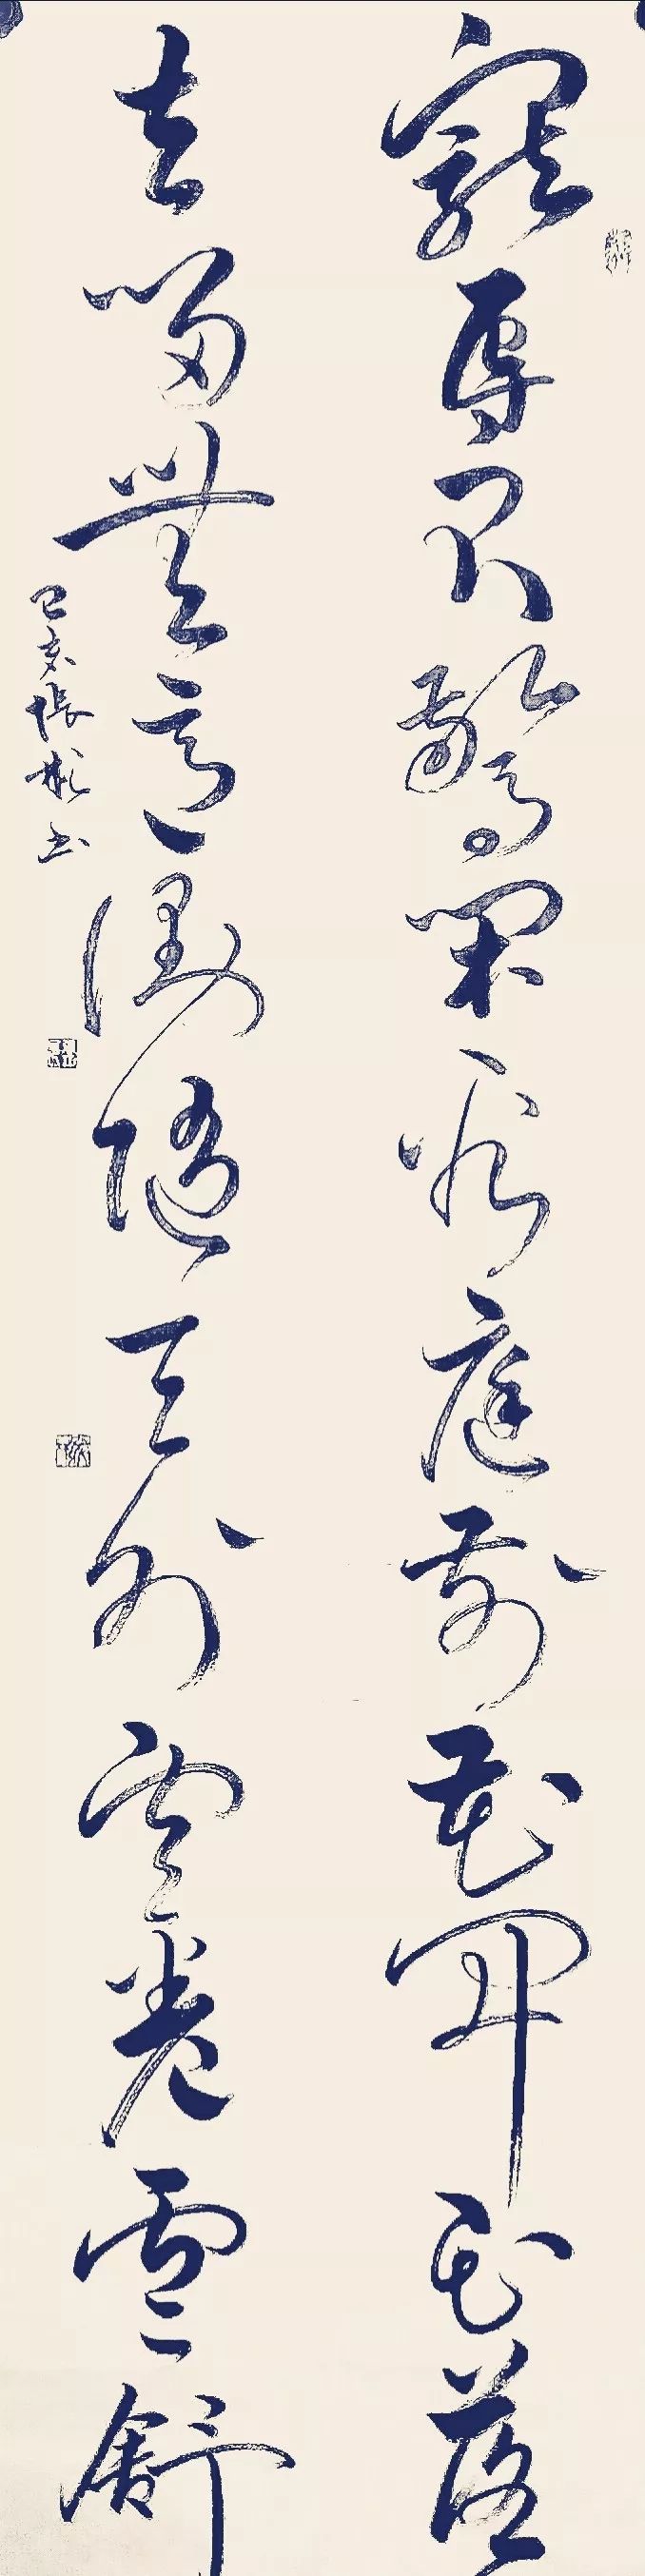 寵辱不驚閑看庭前花開花落
去留無意漫隨天外雲卷雲舒
己亥張彬書